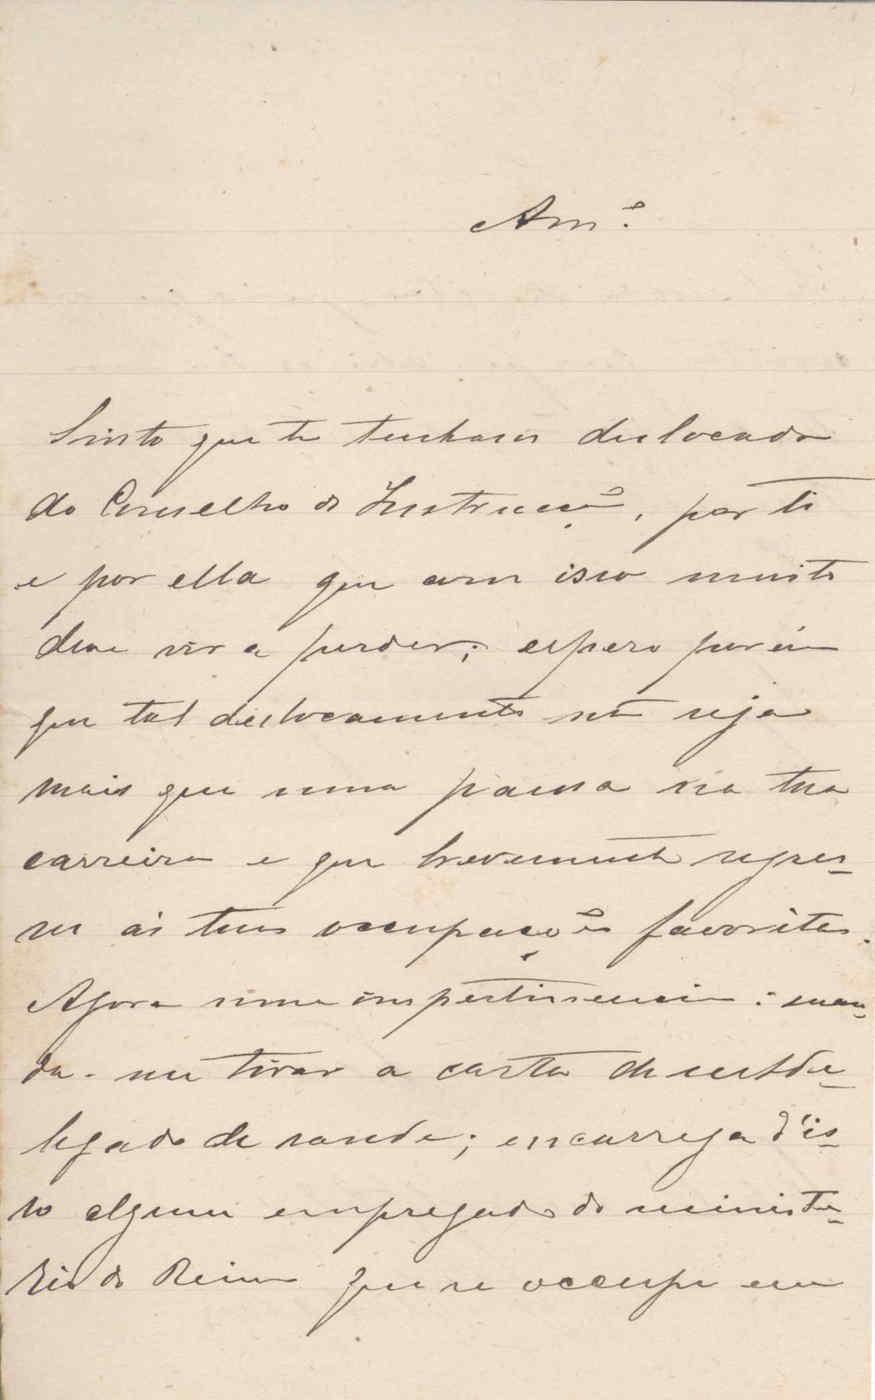 Am.º
Sinto que te tenham deslocado
do Conselho de Instrucção, por ti
e por ella que com isso muito
deve vir a perder; espero porém
que tal deslocamento não seja
mais que uma pausa na tua
carreira e que brevemente regres-
ses ás tuas occupações favoritas.
Agora uma impertinencia: man-
da-me tirar a carta de subde-
legado de saude; encarrega d'is-
so algum empregado do ministe-
rio do Reino que se occupe em